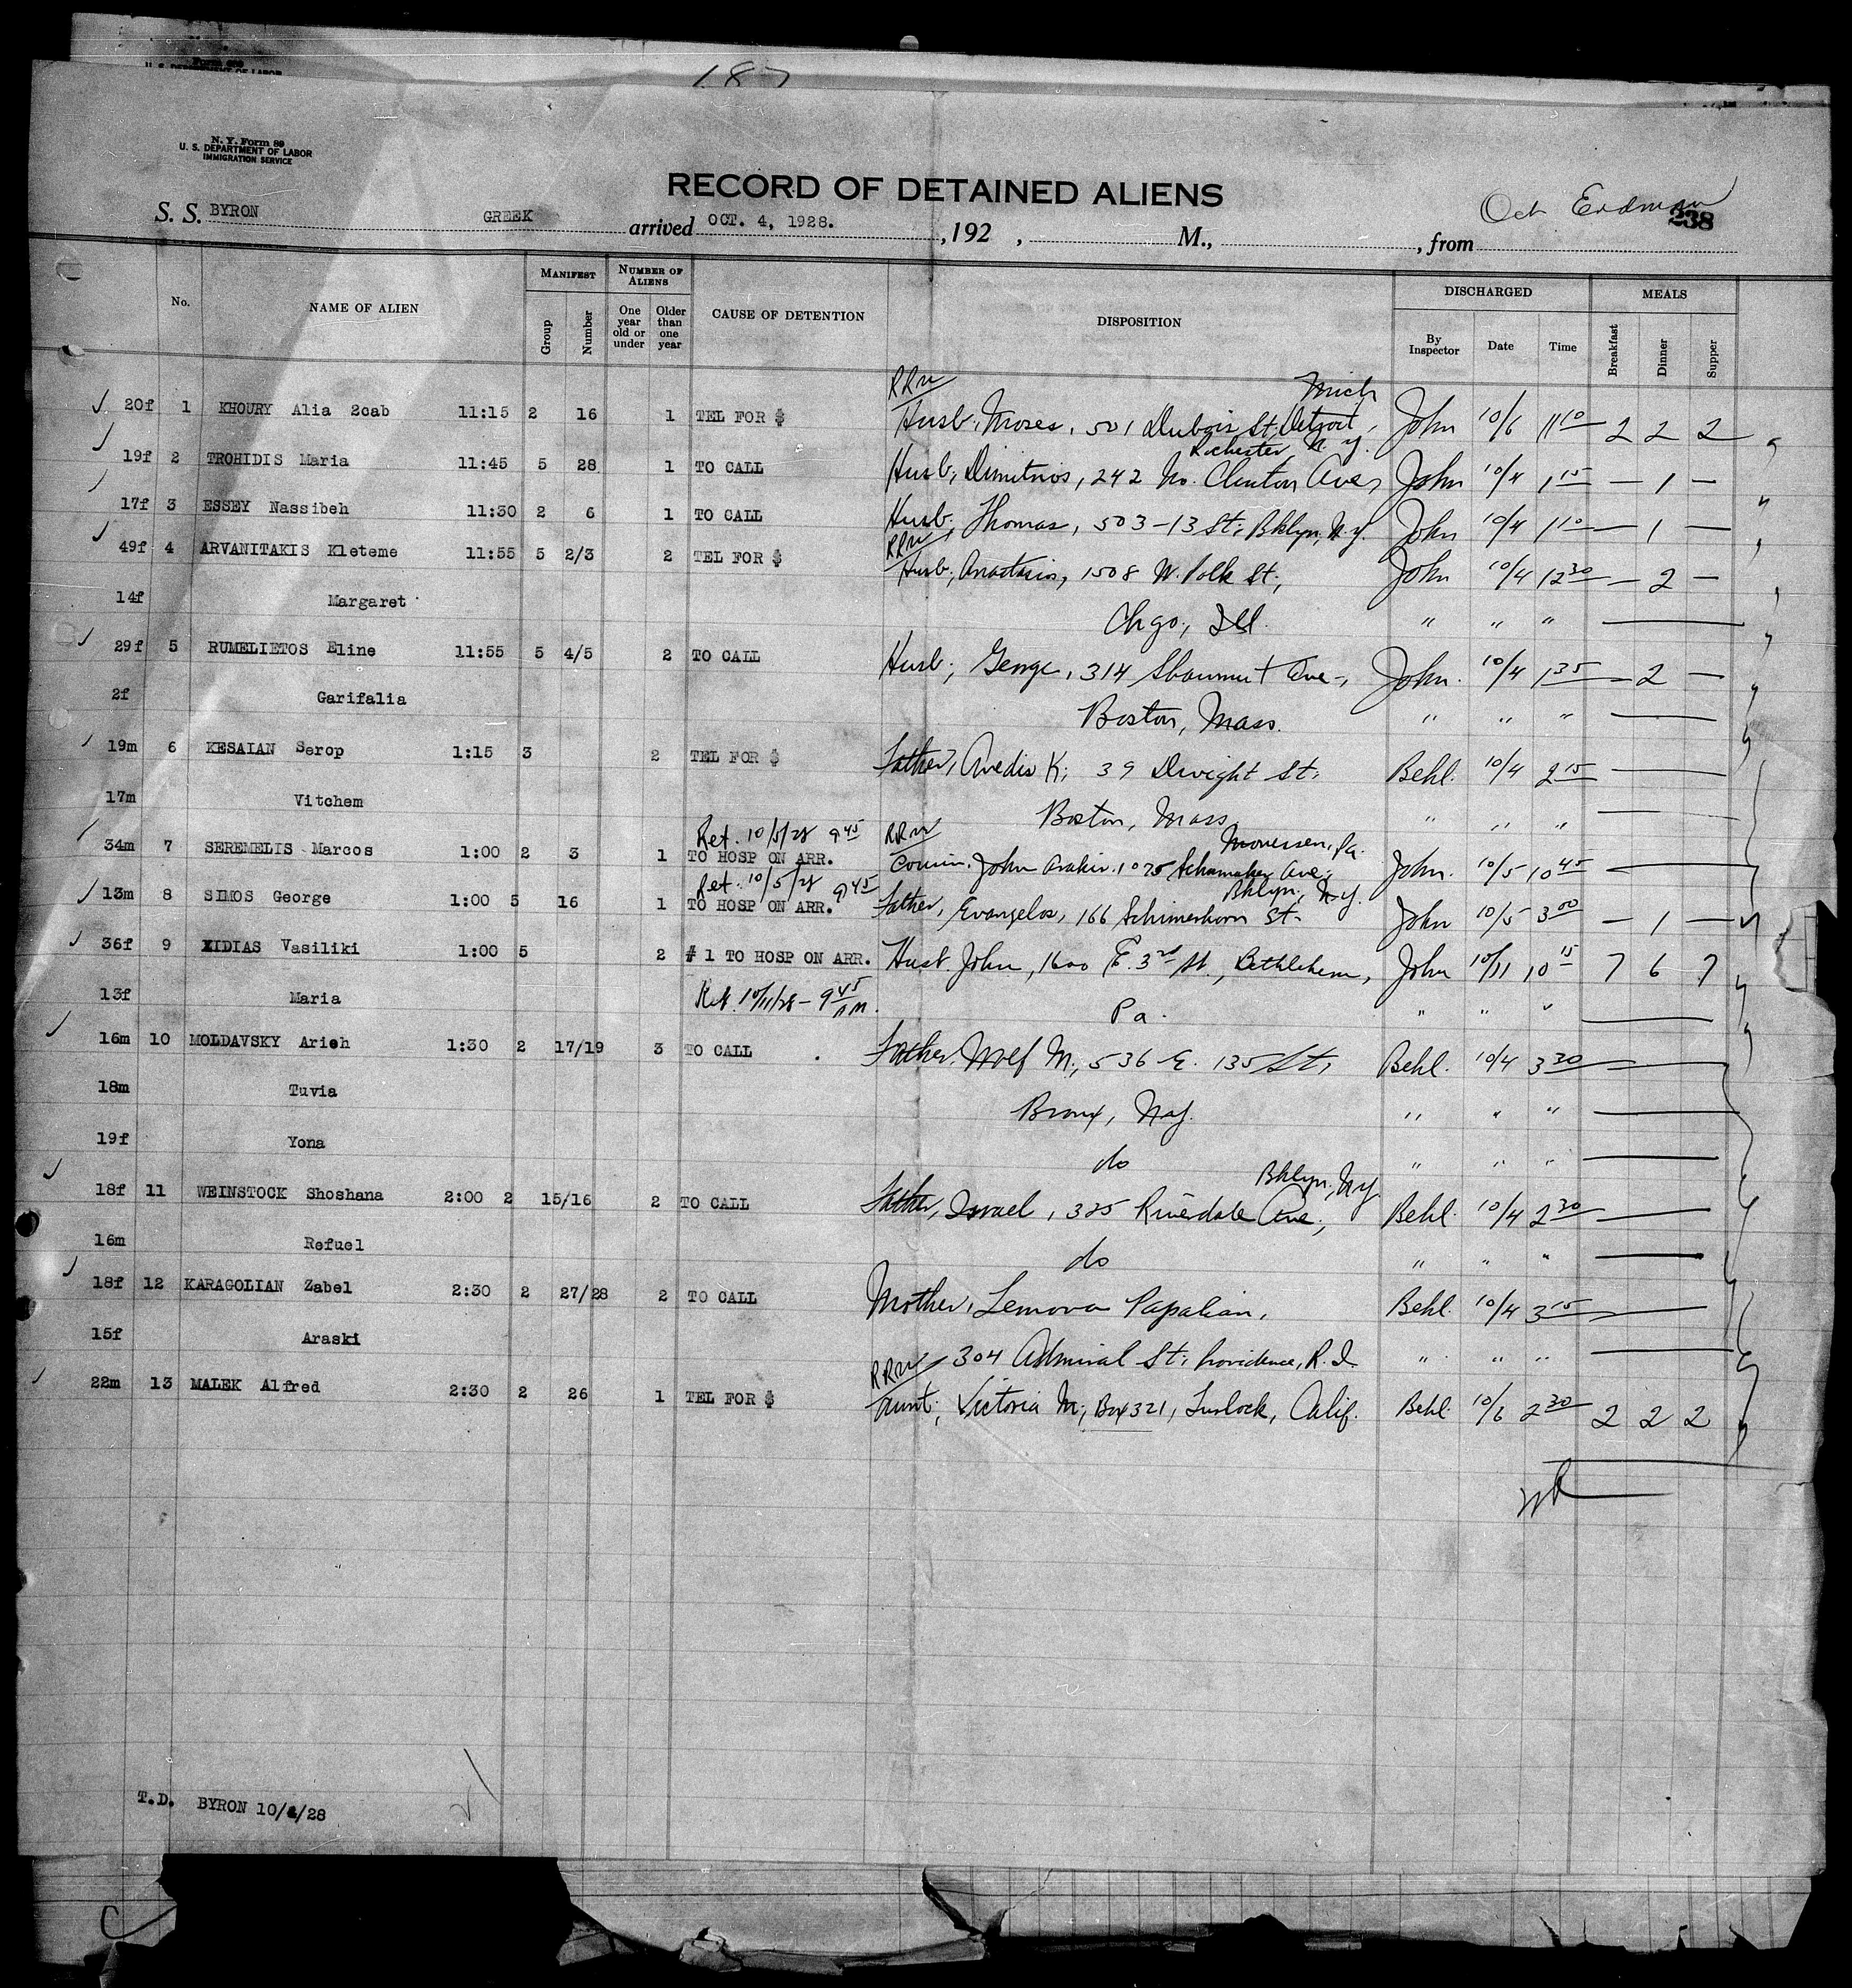 187
N. Y. Form 89
U. S. DEPARTMENT OF LABOR
IMMIGRATION SERVICE
RECORD OF DETAINED ALIENS
Oct Erdman
238
S. S. BYRON GREEK arrived OCT. 4, 1928. , 192 , M., , from
No. NAME OF ALIEN MANIFEST NUMBER OF ALIENS CAUSE OF DETENTION DISPOSITION DISCHARGED MEALS
Group Number One year old or under Older than one year By Inspector Date Time Breakfast Dinner Supper
RRW Mich
20f 1 KHOURY Alia 2cab 11:15 2 16 1 TEL FOR $ Husb, Moses, 501 Dubois St, Detroit, John 10/6 11 10 2 2 2
Rochester, N.Y.
19f 2 TROHIDIS Maria 11:45 5 28 1 TO CALL Husb, Dimitrios, 242 No. Clinton Ave, John 10/4 1 15 — 1 —
17f 3 ESSEY Nassibeh 11:30 2 6 1 TO CALL Husb, Thomas, 503-13 St, Bklyn, N.Y. John 10/4 1 10 — 1 —
RRW
49f 4 ARVANITAKIS Kleteme 11:55 5 2/3 2 TEL FOR $ Husb, Anastasios, 1508 W. Polk St, John 10/4 12 30 — 2 —
14f Margaret Chgo, Ill. " " "
29f 5 RUMELIETOS Eline 11:55 5 4/5 2 TO CALL Husb, George, 314 Shawmut Ave, John. 10/4 1 35 — 2 —
2f Garifalia Boston, Mass. " " "
19m 6 KESAIAN Serop 1:15 3 2 TEL FOR $ Father, Avedis K; 39 Dwight St, Behl. 10/4 2 15
17m Vitchem Boston, Mass " " "
Ret. 10/5/28 9 45 RRW Monessen, Pa.
34m 7 SEREMELIS Marcos 1:00 2 3 1 TO HOSP ON ARR. Cousin, John 1025 Schoonmaker Ave, John. 10/5 10 45
Ret. 10/5/28 9 45 Bklyn, N.Y.
13m 8 SIMOS George 1:00 5 16 1 TO HOSP ON ARR. Father, Evangelos, 166 Schimerhorn St. John 10/5 3 00 — 1 —
36f 9 XIDIAS Vasiliki 1:00 5 2 # 1 TO HOSP ON ARR. Husb. John, 1600 E. 3rd St., Bethlehem, John 10/11 10 15 7 6 7
13f Maria Ret. 10/11/28 - 9 45 AM. Pa. " " "
16m 10 MOLDAVSKY Arieh 1:30 2 17/19 3 TO CALL Father, Wolf M., 536 E. 135 St, Behl. 10/4 3 30
18m Tuvia Bronx, N.Y. " " "
19f Yona do " " "
Bklyn, N.Y.
18f 11 WEINSTOCK Shoshana 2:00 2 15/16 2 TO CALL Father, Israel, 325 Riverdale Ave, Behl. 10/4 2 30
16m Refuel do " " "
18f 12 KARAGOLIAN Zabel 2:30 2 27/28 2 TO CALL Mother, Lemova Papalian, Behl. 10/4 3 15
15f Araski 304 Admiral St, Providence, R.I. " " "
RRW
22m 13 MALEK Alfred 2:30 2 26 1 TEL FOR $ Aunt, Victoria M; Box 321, Turlock, Calif. Behl. 10/6 2 30 2 2 2
T.D. BYRON 10/4/28